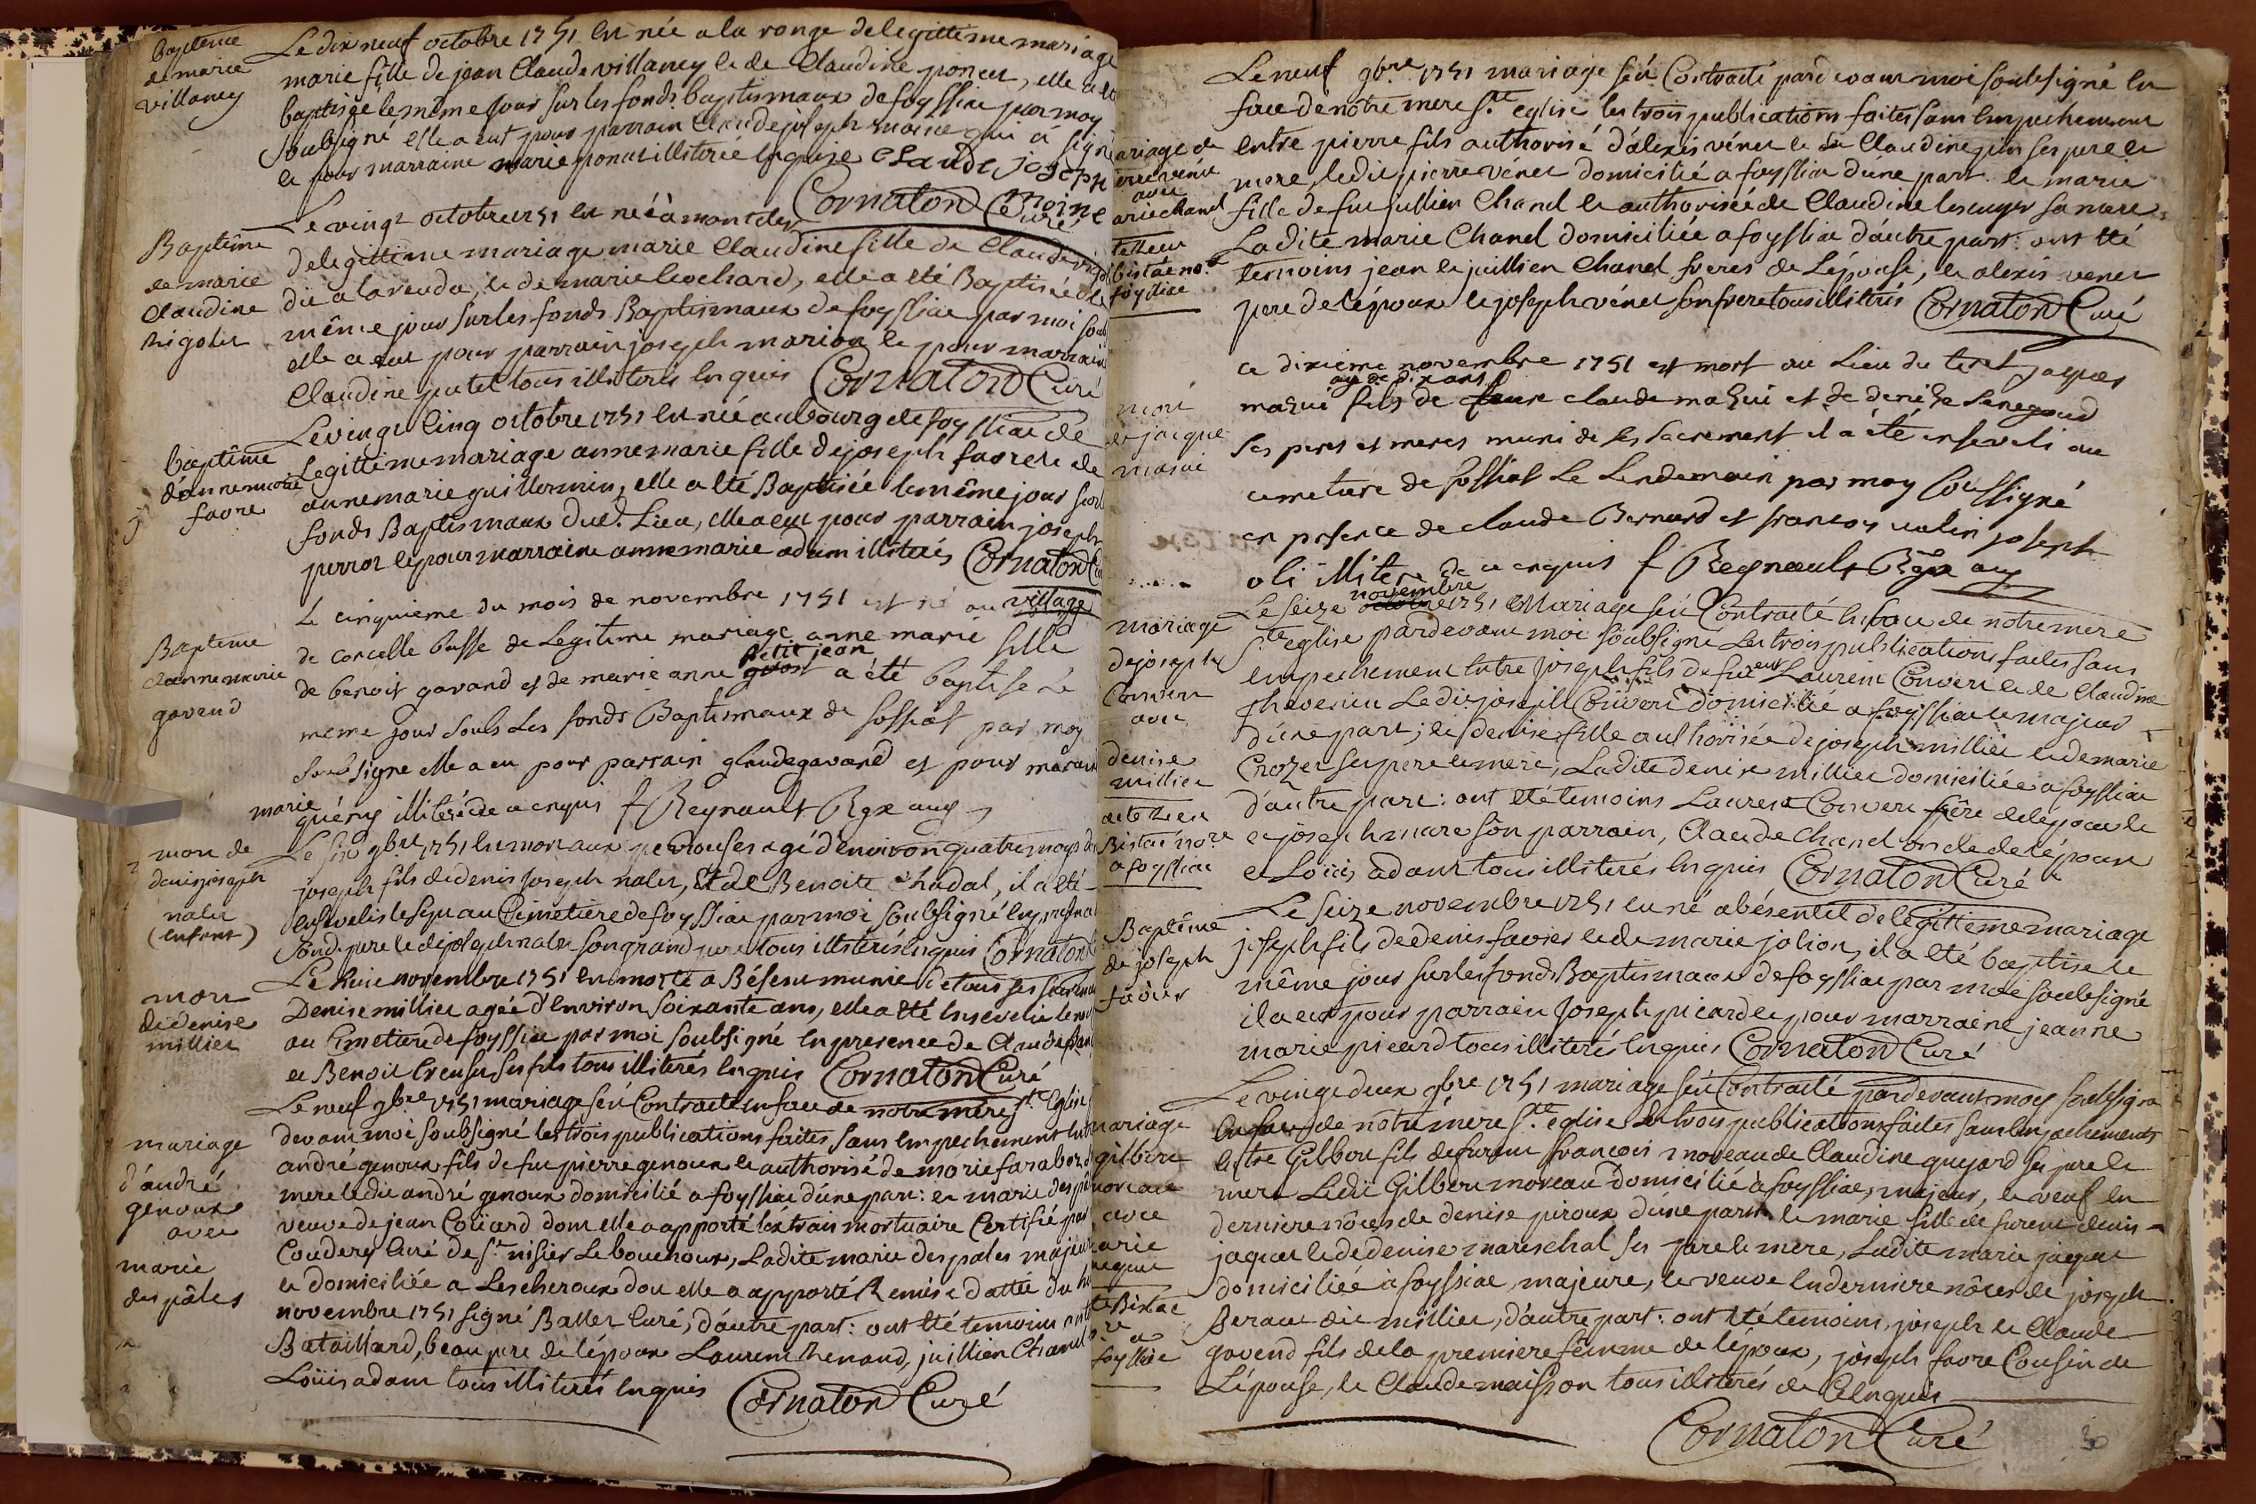 Baptême
de marie
villaney
Le dix neuf octobre 1751 est née a la ronge de legittime mariage
marie fille de jean Claude villaney et de Claudine poncet, elle a eté
baptisée le même jour sur les fonds baptismaux de foyssiac par moy
soubsigné elle a eut pour parrain Claude joseph moine qui à signé
et pour marraine marie poncet illiterée enquise Claude joseph
moine
Cornaton Curé
Baptême
de marie
Claudine
rigolet
Le vingt octobre 1751 est néé à
de legittime mariage marie Claudine fille de Claude
dit a la et de marie bochard, elle a eté Baptisée le
même jour sur les fonds Baptismaux de foyssiac par moi
elle a eut pour parrain joseph marion et pour marraine
Claudine putet tous illiterés enquis Cornaton Curé
baptême
d'annemarie
favre
Le vingt cinq octobre 1751 est née au bourg de foyssiac de
legittime mariage annemarie fille de joseph favre et de
annemarie guillermin, elle a eté Baptisée le même jour sur
fonds Baptismaux dud. Lieu, elle a eut pour parrain joseph
perrot et pour marraine annemarie adam illiterés Cornaton
Bapteme
d'annemarie
gavend
Le cinquieme du mois de novembre 1751 est né au village
de corcelle basse de Legitime mariage anne marie fille
petit jean
de benoit gavand et de marie anne a été baptisé le
meme jour soubs Les fonds Baptismaux de fossiat par moy
soubsigne elle a eu pour parrain glaude gavand et pour maraine
marie
guérry illiteré de ce enquis f Reynault Rgx aug
mort de
denis joseph
nalet
(enfant)
Le six gbre 1751 est mort aux perrouses agé d'environ quatre moys
joseph fils de denis Joseph nalet, et de Benoite chudal, il a eté
ensevelis le 7 au Cimetiere de foyssiac par moi soubsigné en presence
dud. pere et de joseph nalet son grand pere tous illiterés enquis Cornaton
mort
de denise
millier
Le huit novembre 1751 est morte a Bésent munie de tous ses sacrements
Denise millier agée d'environ soixante ans, elle a eté ensevelie le
au Cimetiere de foyssiac par moi soubsigné en presence de Claude
et Benoit Creuset ses fils tous illiterés enquis Cornaton Curé
mariage
d'andré
genoux
avec
marie
des pâles
Le neuf gbre 1751 mariage feû Contracté en face de notre mere Ste Eglise
devant moi soubsigné les trois publications faites sans empechement entre
andré genoux fils de fut pierre genoux et authorisé de marie farabos
mere ledit andré genoux domicilié a foyssiac d'une part: et marie des pâles
veuve de jean Coüard dont elle a apporté l'extrait mortuaire Certifié par
Coudery Curé de St nisier Le bouchoux, Ladite marie des pales majeure
et domiciliée a Lescheroux dou elle a apporté Remise dattée du
novembre 1751 signé Ballet Curé, d'autre part: ont eté temoins
Bataillard, beau pere de l'époux Laurent Renaud, juillien Chanel
Loüis adam tous illiterés enquis Cornaton Curé
ariage de
pierre vénet
avec
arie chanel
Le neuf gbre 1751 mariage feû Contracté pardevant moi soubsigné en
face de notre mere Ste eglise les trois publications faites sans empechement
entre pierre fils authorisé d'aléxis vénet et de Claudine ses pere et
mere, ledit pierre vénet domicilié a foyssiac d'une part. et marie
fille de fut jullien Chanel et authorisée de Claudine lescuyer sa mere
La dite marie Chanel domiciliée a foyssiac d'autre part: ont eté
temoins jean et juillien Chanel freres de L'épouse, et alexis venet
pere de l'époux et joseph vénet son frere tous illiterés Cornaton Curé
mort
de jacque
masui
ce dixieme novembre 1751 est mort au Lieu du teret jaques
agé de dix ans
mazui fils de claude mazui et de denise Senegoud
ses peres et meres muni de ses Sacrement il a été enseveli au
cimetiere de fossiat Le Lendemain par moy Soussigné
en presence de claude Bernard et francois joseph
oli illiteré de ce enquis f Reynault Rgx aug
mariage
de joseph
Convert
avec
denise
millier
novembre
Le seize 1751 Mariage feû Contracté en face de notre mere
Ste eglise pardevant moi soubsigné Les trois publications faites sans
empechement entre Joseph fils de fut Laurent Convert et de Claudine
thevenin Ledit joseph Convert domicilié a foyssiac et majeur
d'une part, et denise fille authorisée de joseph millier et de marie
Crozet ses pere et mere, Ladite denise millier domiciliée a foyssiac
d'autre part: ont eté temoins Laurent Convert frère de l'époux et
et joseph mare son parrain, Claude Chanel oncle de l'époux
et Loüis adam tous illiterés enquis Cornaton Curé
Baptême
de joseph
favier
Le seize novembre 1751 est né a bésentet de legittime mariage
joseph fils de denis favier et de marie jolion, il a eté baptisé le
même jour sur les fonds Baptismaux de foyssiac par moi soubsigné
il a eut pour parrain Joseph picard et pour marraine jeanne
marie picard tous illiterés enquis Cornaton Curé
mariage
gilbert
moreau
avec
marie
jaquet
Le vingt deux gbre 1751 mariage feû Contracté pardevant moy soubsigné
en face de notre mère Ste eglise les trois publications faites sans empechements
entre Gilbert fils de furent françois moreau de Claudine guyard ses pere et
mere Ledit Gilbert moreau domicilié à foyssiac, majeur, et veuf en
derniere nôces de denise piroux d'une part. et marie fille de furent denis
jaquet et de denise mareschal ses pere et mere, Ladite marie jaquet
domiciliée à foyssiac, majeure, et veuve en derniere nôces de joseph
Beraut dit millier, d'autre part: ont eté temoins, joseph et Claude
gavend fils de la premiere femme de l'époux, joseph favre Cousin de
L'épouse, et Claude maisson tous illiterés de Ce enquis
Cornaton Curé